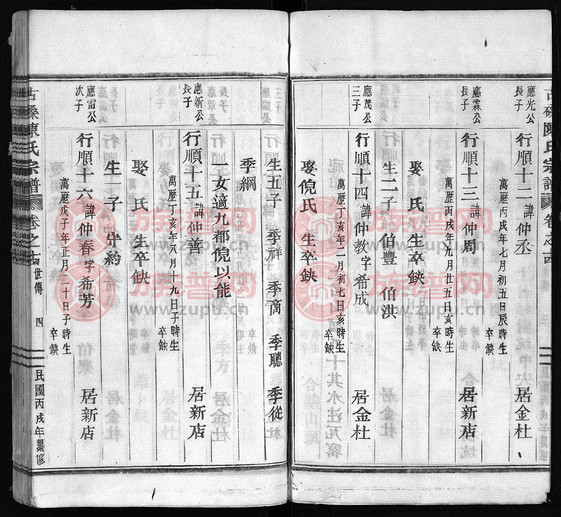 古磉陳氏宗譜 卷之四
應光公長子
行順十二諱仲丞 居新店
萬曆丙戌年七月初五日辰時生
卒缺
應霖公長子
行順十三諱仲周 居金杜
萬曆丙戌年九月廿五日亥時生
卒缺
娶 氏 生卒缺
生二子 伯豐 伯洪
應茂公三子
行順十四諱仲教字希成 居金杜
萬曆丁亥年二月初七日亥時生
卒缺
娶倪氏 生卒缺
生五子 季祥 季商 季聽 季從
季綱
一女適九都倪以能
應新公長子
行順十五諱仲善 居新店
萬曆丁亥年八月十九日子時生
卒缺
娶 氏 生卒缺
生一子 守約
應雷公次子
行順十六諱仲春字希芳 居新店
萬曆戊子年正月二十日子時生
卒缺
古磉陳氏宗譜 卷之四 世傳 四 民國丙戌年纂修
族譜网
www.zupu.cn